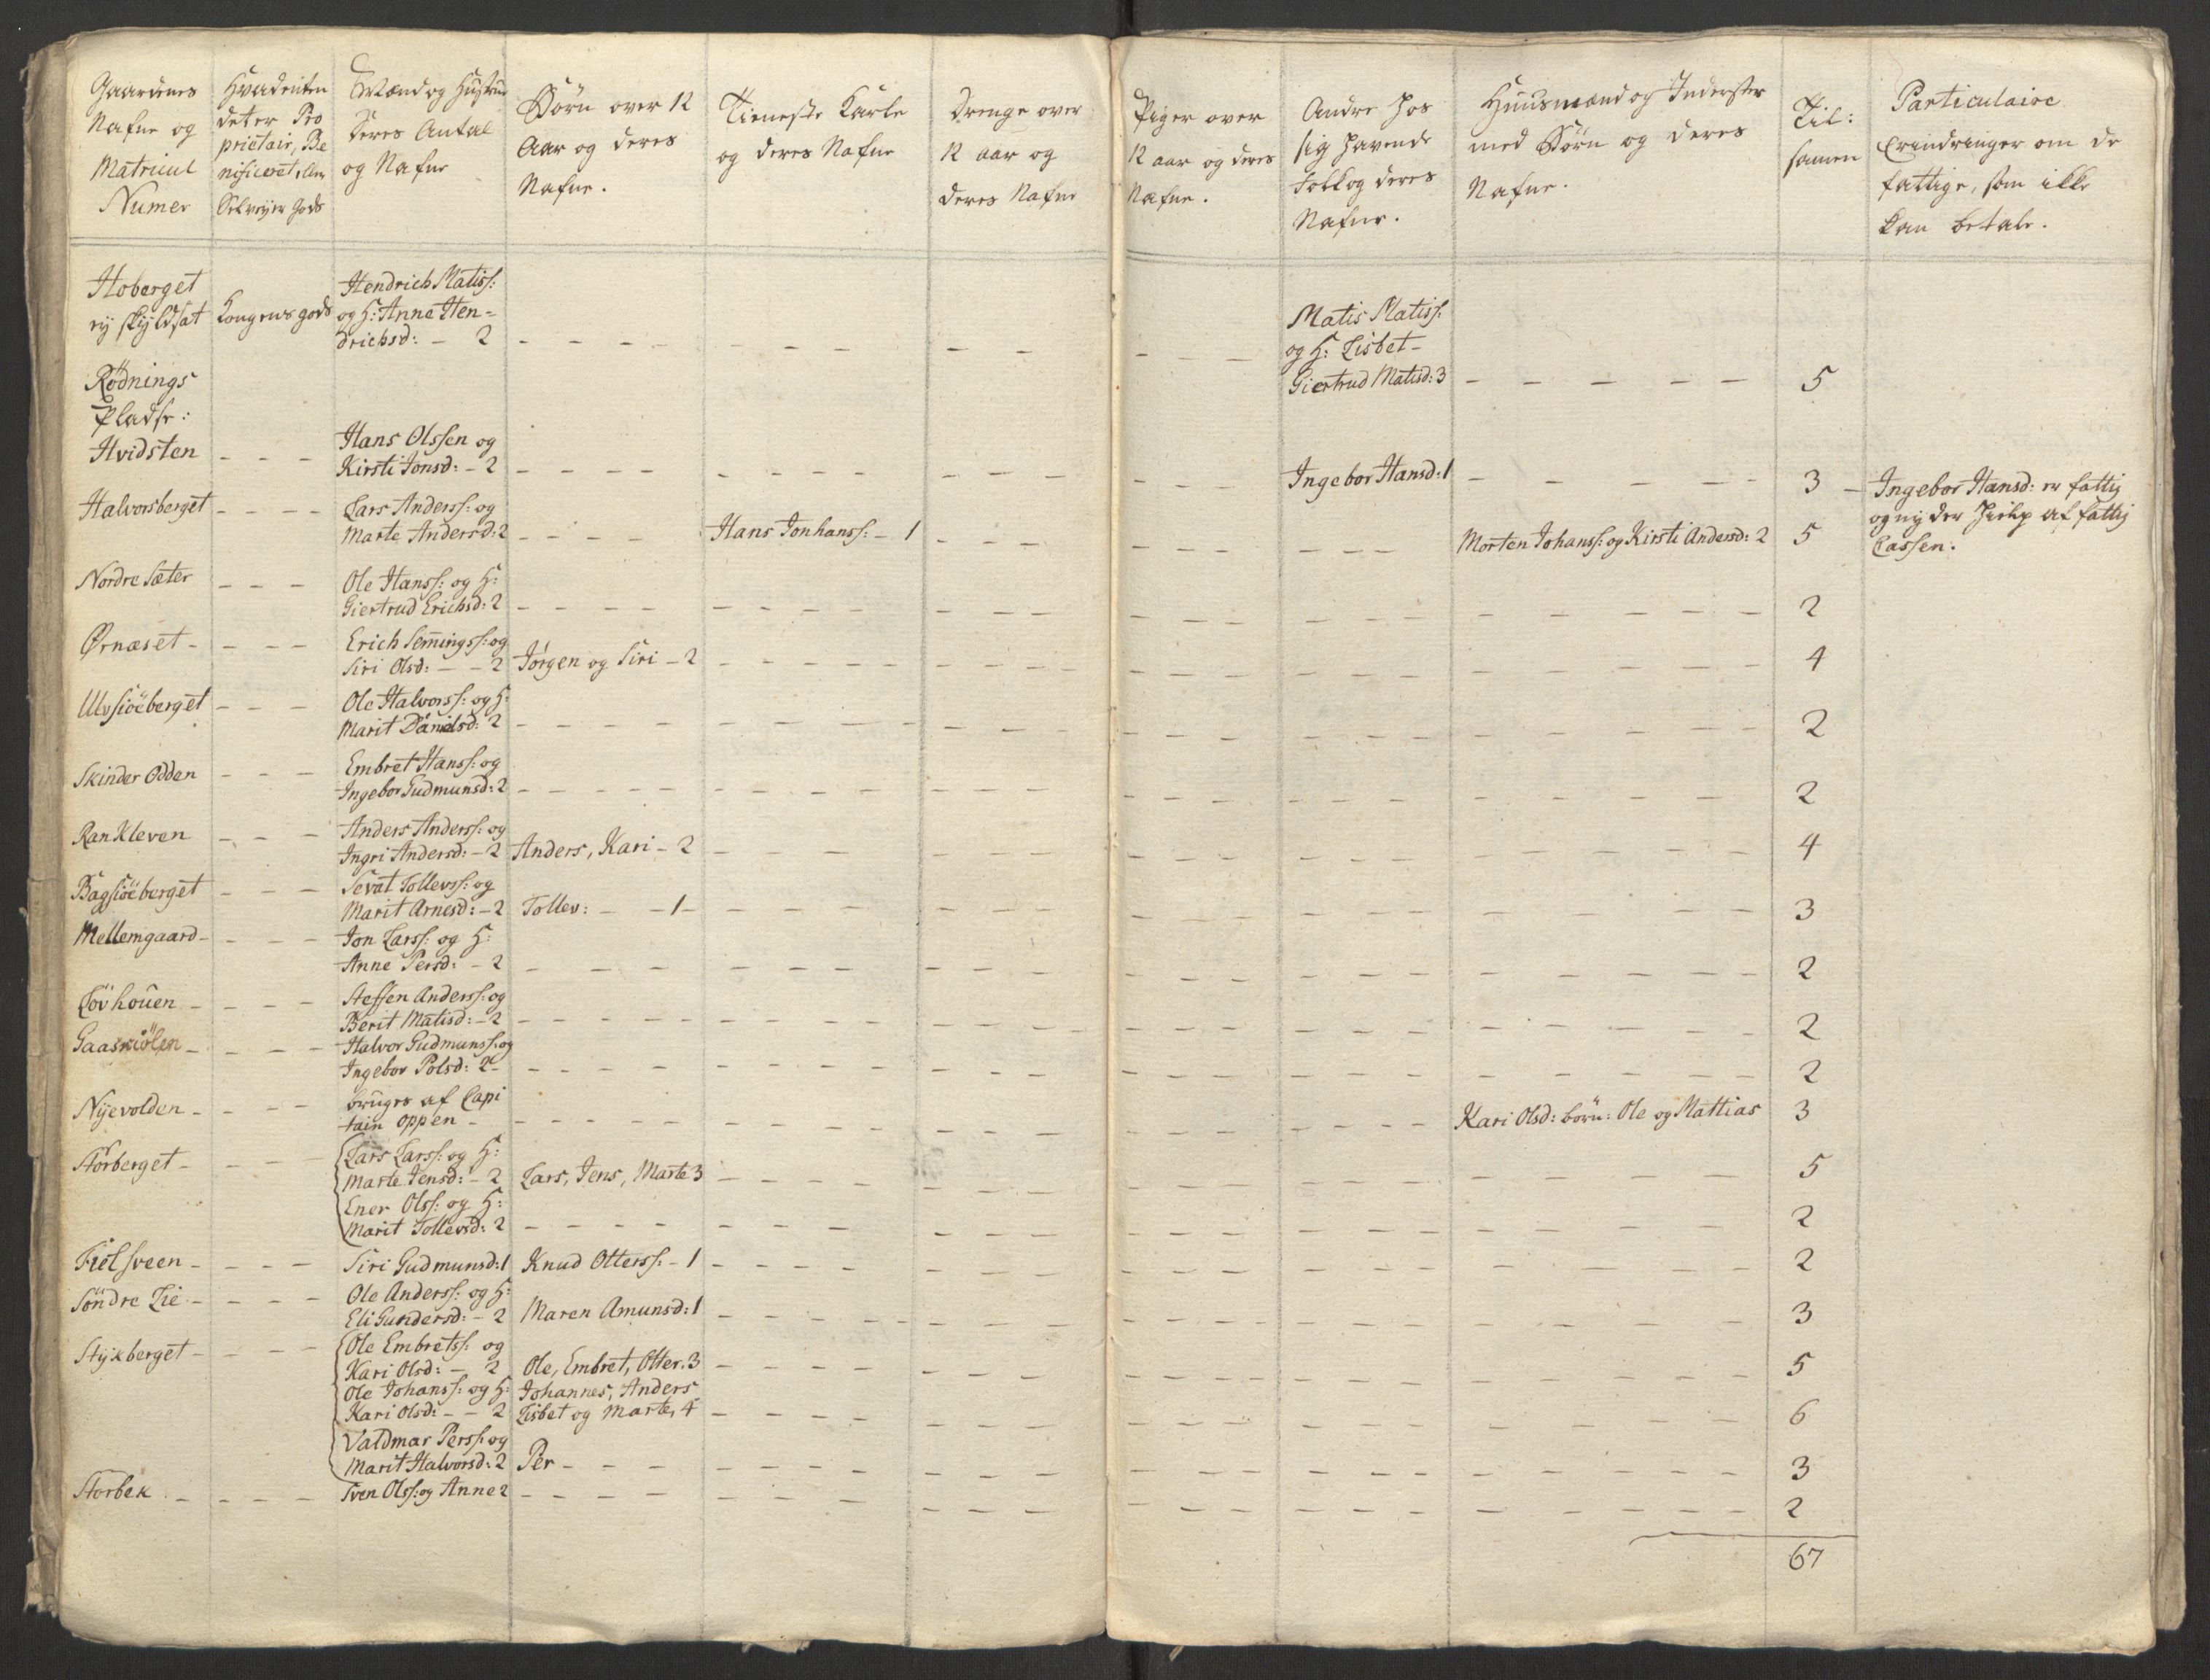 Gaardenes
Nafne og
Matricul
Numer
Hvadenten
det er Pro
prietair, Be
nificeret, eller
Selveyer Gods
Mænd og Hustrue
Deres Antal
og Nafne
Børn over 12
Aar og deres
Nafne.
Tieneste Karle
og deres Nafne
Drenge over
12 aar og
deres Nafne
Piger over
12 aar og deres
Nafne.
Andre hos
sig havende
Folk og deres
Nafne.
Huusmænd og Inderster
med Børn og deres
Nafne.
Til:
samen
Particulaire
Erindringer om de
fattige, som ikke
kan betale.
Hoberget
nÿ skÿldsat
Kongens gods
Hendrich Matiss:
og H: Anne Hen-
drichsd: - 2
Matis Matiss:
og H: Lisbet -
Giertrud Matisd: 3
5
Rødnings
Pladse:
Hvidsten
Hans Olssen og
Kirsti Jonsd: - 2
Ingebor Hansd: 1
3
Ingebor Hansd: er fattig
og nÿder Hielp af fattig
Cassen.
Halvorsberget
Lars Anderss: og
Marte Andersd: 2
Hans Jonhanss: - 1
Morten Johanss: og Kirsti Andersd: 2
5
Nordre Sæter
Ole Hanss: og H:
Giertrud Erichsd: 2
2
Ørnæset
Erich Semingss: og
Siri Olsd: - - 2
Jørgen og Siri - 2
4
Ulvsiöeberget
Ole Halvorss: og H:
Marit Danielsd: 2
2
Skinder Odden
Embret Hanss: og
Ingebor Gudmunsd: 2
2
RanKleven
Anders Anderss: og
Ingri Andersd: - 2
Anders, Kari - 2
4
Bagsiöeberget
Sevat Tollevss: og
Marit Arnesd: - 2
Tollev: - - 1 -
3
Mellemgaard
Jon Larss: og H:
Anne Persd: - 2
2
Lövhouen
Steffen Anderss: og
Berit Matisd: - 2
2
Gaaskiölen
Halvor Gudmunss: og
Ingebor Polsd: 2
2
Nÿevolden
bruges af Capi
tain Oppen
Kari Olsd: börn: Ole og Mattias
3
Storberget
Lars Larss: og H:
Marte Jensd: - 2
Lars, Jens, Marte 3
5
Ener Olss: og H:
Marit Tollevsd: 2
2
Fielsveen
Siri Gudmunsd: 1
Knud Otterss: - 1
2
Söndre Lie
Ole Anderss: og H:
Eli Gundersd: - 2
Maren Amunsd: 1
3
Stÿkberget
Ole Embretss: og
Kari Olsd: - 2
Ole, Embret, Otter. 3
5
Ole Johanss: og H:
Kari Olsd: - - 2
Johannes, Anders
Lisbet og Marte, 4
6
Valdmar Perss: og
Marit Halvorsd: 2
Per
3
Storbek
Sven Olss: og Anne 2
2
67